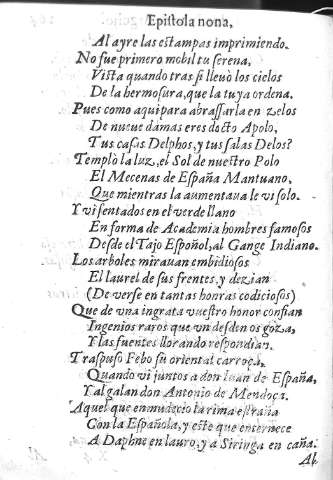 Epistola nona,
Al ayre las estampas imprimiendo.
No fue primero mobil tu serena,
Vista quando tras si lleuò los cielos
De la hermosura, que la tuya ordena.
Pues como aquí para abrassarla en zelos
De nueue damas eres docto Apolo,
Tus casas Delphos, y tus salas Delos?
Templò la luz, el Sol de nuestro Polo
El Mecenas de España Mantuano,
Que mientras la aumentaua le vi solo.
Y vi sentados en el verde llano
En forma de Academia hombres famosos
Desde el Tajo Español, al Gange Indiano.
Los arboles mirauan embidiosos
El laurel de sus frentes, y dezian
(De verse en tantas honras codiciosos)
Que de vna ingrata vuestro honor confian
Ingenios raros que vn desden os goza,
Y las fuentes llorando respondian.
Traspuso Febo su oriental carroça,
Quando vi juntos a don Iuan de España,
Y al galan don Antonio de Mendoça.
Aquel que enmudecio la rima estraña
Con la Española, y este que enternece
A Daphne en lauro, y a Siringa en caña.
Al